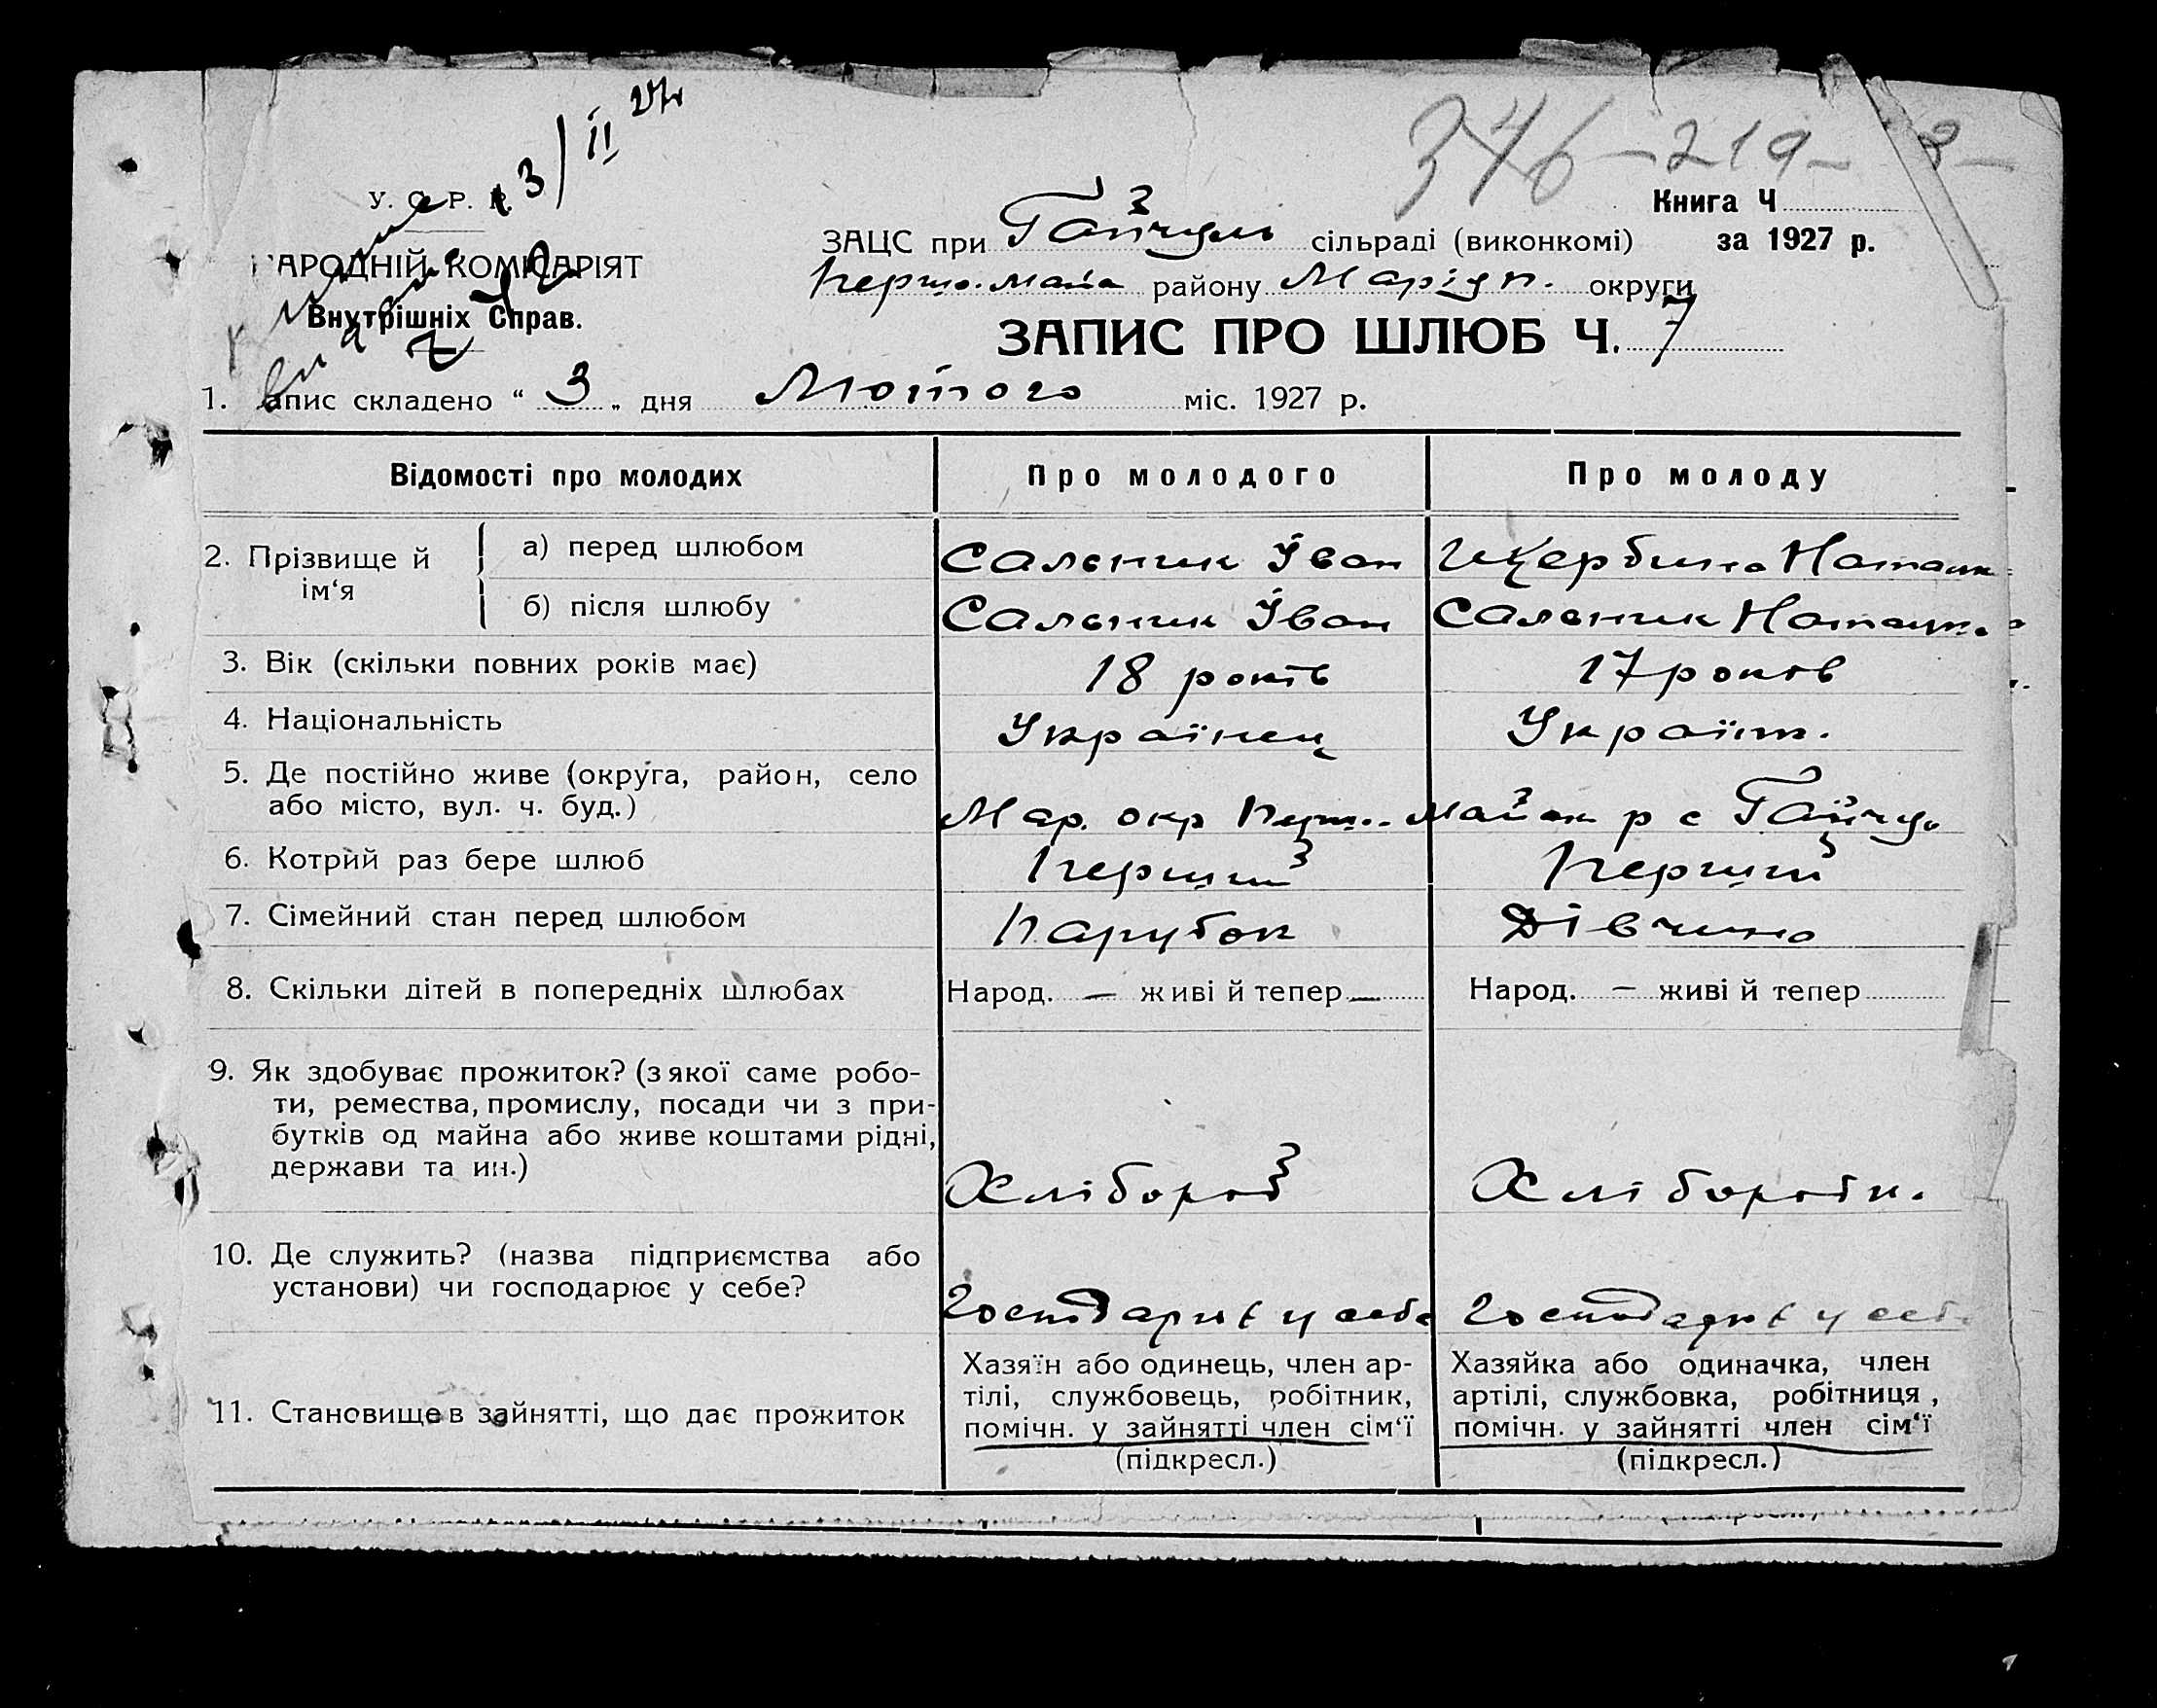 3/II 27р
346-219-
У. С. Р. Р.
НАРОДНІЙ КОМІСАРІЯТ
Внутрішніх Справ.
Книга Ч
за 1927 р.
ЗАЦС при Гайчуль сільраді (виконкомі)
Першо.майс району Маріуп. округи
ЗАПИС ПРО ШЛЮБ Ч. 7
1. Запис складено "3" дня Лютого міс. 1927 р.
Відомості про молодих Про молодого Про молоду
2. Прізвище й ім'я
а) перед шлюбом Саленик Іван Щербина Наталк
б) після шлюбу Саленик Іван Саленик Наталк
3. Вік (скільки повних років має) 18 років 17 років
4. Національність Українец Україн.
5. Де постійно живе (округа, район, село
або місто, вул. ч. буд.) Мар. окр Перш.. майск р с Гайчул
6. Котрий раз бере шлюб Перший Перший
7. Сімейний стан перед шлюбом Парубок Дівчина
8. Скільки дітей в попередніх шлюбах Народ. — живі й тепер — Народ. — живі й тепер
9. Як здобуває прожиток? (з якої саме робо-
ти, ремества, промислу, посади чи з при-
бутків од майна або живе коштами рідні,
держави та ин.) Хлібороб Хлібороби.
10. Де служить? (назва підприємства або
установи) чи господарює у себе? Господарює у себе Господарює у себе
11. Становище в зайнятті, що дає прожиток
Хазяїн або одинець, член ар-
тілі, службовець, робітник,
помічн. у зайнятті член сім'ї
(підкресл.)
Хазяйка або одиначка, член
артілі, службовка, робітниця,
помічн. у зайнятті член сім'ї
(підкресл.)